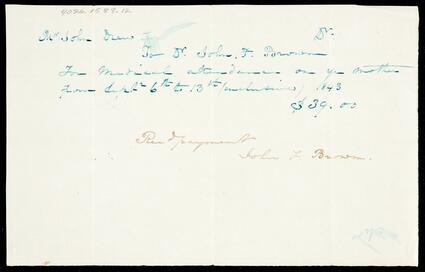 4026.1588.12
Mr John Drew Dr.
To Dr. John. F. Brown
For Medical attendance on ye mother
from Septr 6th to 13th (inclusive) 1843
$39.00
Recd payment
John F Brown.